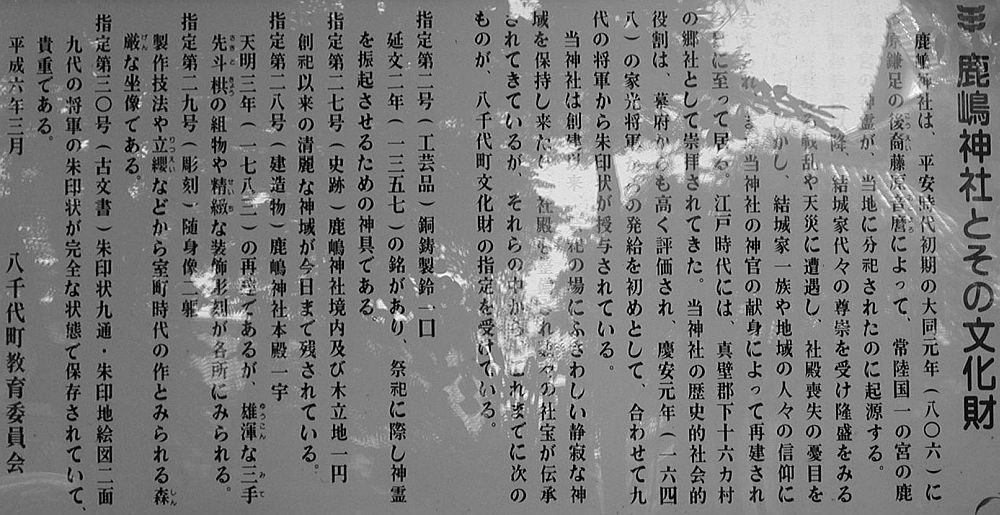 鹿嶋神社とその文化財
鹿嶋神社は、平安時代初期の大同元年(八〇六)に
原鎌足の後裔藤原音麿によって、常陸国一の宮の鹿
霊が、当地に分祀されたのに起源する。
降、結城家代々の尊崇を受け隆盛をみる
戦乱や天災に遭遇し、社殿喪失の憂目を
かし、結城家一族や地域の人々の信仰に
当神社の神官の献身によって再建され
に至って居る。江戸時代には、真壁郡下十六カ村
の郷社として崇拝されてきた。当神社の歴史的社会的
役割は、幕府からも高く評価され、慶安元年(一六四
八)の家光将軍からの発給を初めとして、合わせて九
代の将軍から朱印状が授与されている。
当神社は創建以来、祭祀の場にふさわしい静寂な神
域を保持し来たり、社殿や の社宝が伝承
されてきているが、それらの中から、これまでに次の
ものが、八千代町文化財の指定を受けている。
指定第二号(工芸品)銅鋳製鈴一口
延文二年(一三五七)の銘があり、祭祀に際し神霊
を振起させるための神具である。
指定第二七号(史跡)鹿嶋神社境内及び木立地一円
創祀以来の清麗な神域が今日まで残されている。
指定第二八号(建造物)鹿嶋神社本殿一宇
天明三年(一七八三)の再建であるが、雄渾な三手
先斗栱の組物や精緻な装飾彫刻が各所にみられる。
指定第二九号(彫刻)随身像二躯
製作技法や立纓などから室町時代の作とみられる森
厳な坐像である。
指定第三〇号(古文書)朱印状九通・朱印地絵図二面
九代の将軍の朱印状が完全な状態で保存されていて、
貴重である。
平成六年三月
八千代町教育委員会